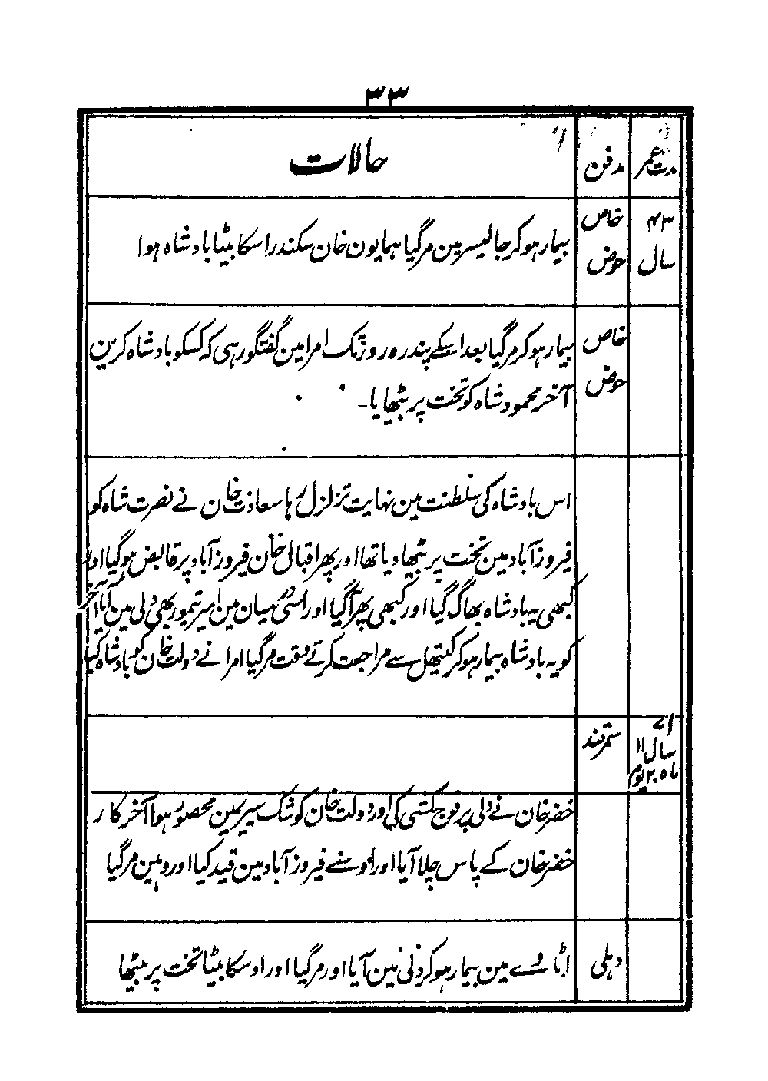 ۳۳
مدت عمر
مدفن
حالات
۴۳
سال
خاص
حوض
بیمار ہوکر جالیسر مین مرگیا ہمایون خان سکندر اسکا بیٹا بادشاہ ہوا
خاص
حوض
بیمار ہوکر مرگیا بعد اسکے پندرہ روز تک امرا مین گفتگو رہی کہ کسکو بادشاہ کرین
آخر محمود شاہ کو تخت پر بٹھایا۔
اس بادشاہ کی سلطنت مین نہایت تزلزل رہا سعادت خان نے نصرت شاہ کو
فیروزآباد مین تخت پر بٹھا دیا تھا اور پھر اقبال خان فیروزآباد پر قابض ہوگیا اور
کبھی یہ بادشاہ بھاگ گیا اور کبھی پھر آگیا اور اسی درمیان مین امیر تیمور بھی دلی مین آیا آخر
کو یہ بادشاہ بیمار ہوکر کیتھل سے مراجعت کرتے وقت مرگیا امرا نے دولت خان کو بادشاہ کیا
۷۱
سال ۱۱
ماہ ۲۰ یوم
سمرقند
خضر خان نے دلی پر فوج کشی کی اور دولت خان کوشک سیری مین محصور ہوا آخرکار
خضر خان کے پاس چلا آیا اور اوسنے فیروزآباد مین قید کیا اور وہین مرگیا
دہلی
اٹاوے مین بیمار ہوکر دلی مین آیا اور مرگیا اور اوسکا بیٹا تخت پر بیٹھا